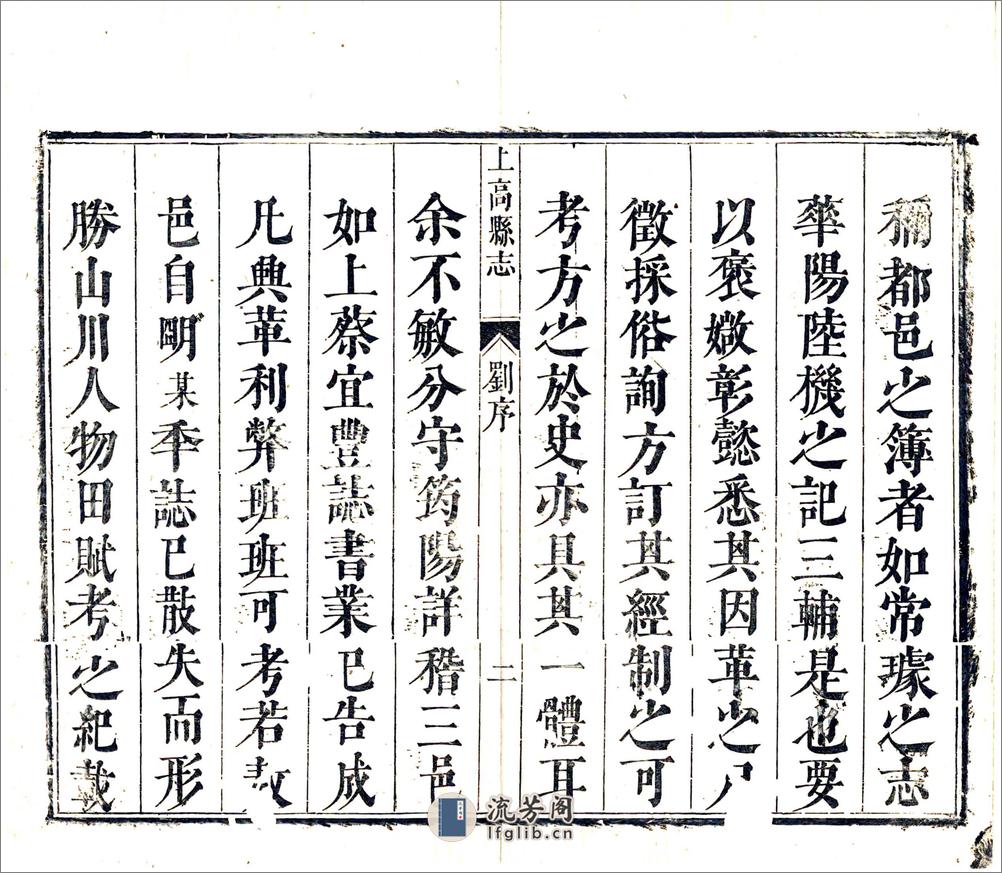 穪都邑之簿者如常璩之志
華陽陸機之記三輔是也要
以褒媺彰懿悉其因革之
徵採俗詢方訂其經制之可
考方之於史亦具其一體耳
上高縣志 劉序 二
余不敏分守筠陽詳稽三邑
如上蔡宜豐誌書業已告成
凡興革利弊班班可考若
邑自朙某季誌已散失而形
勝山川人物田賦考之紀載
流芳阁
lfglib.cn